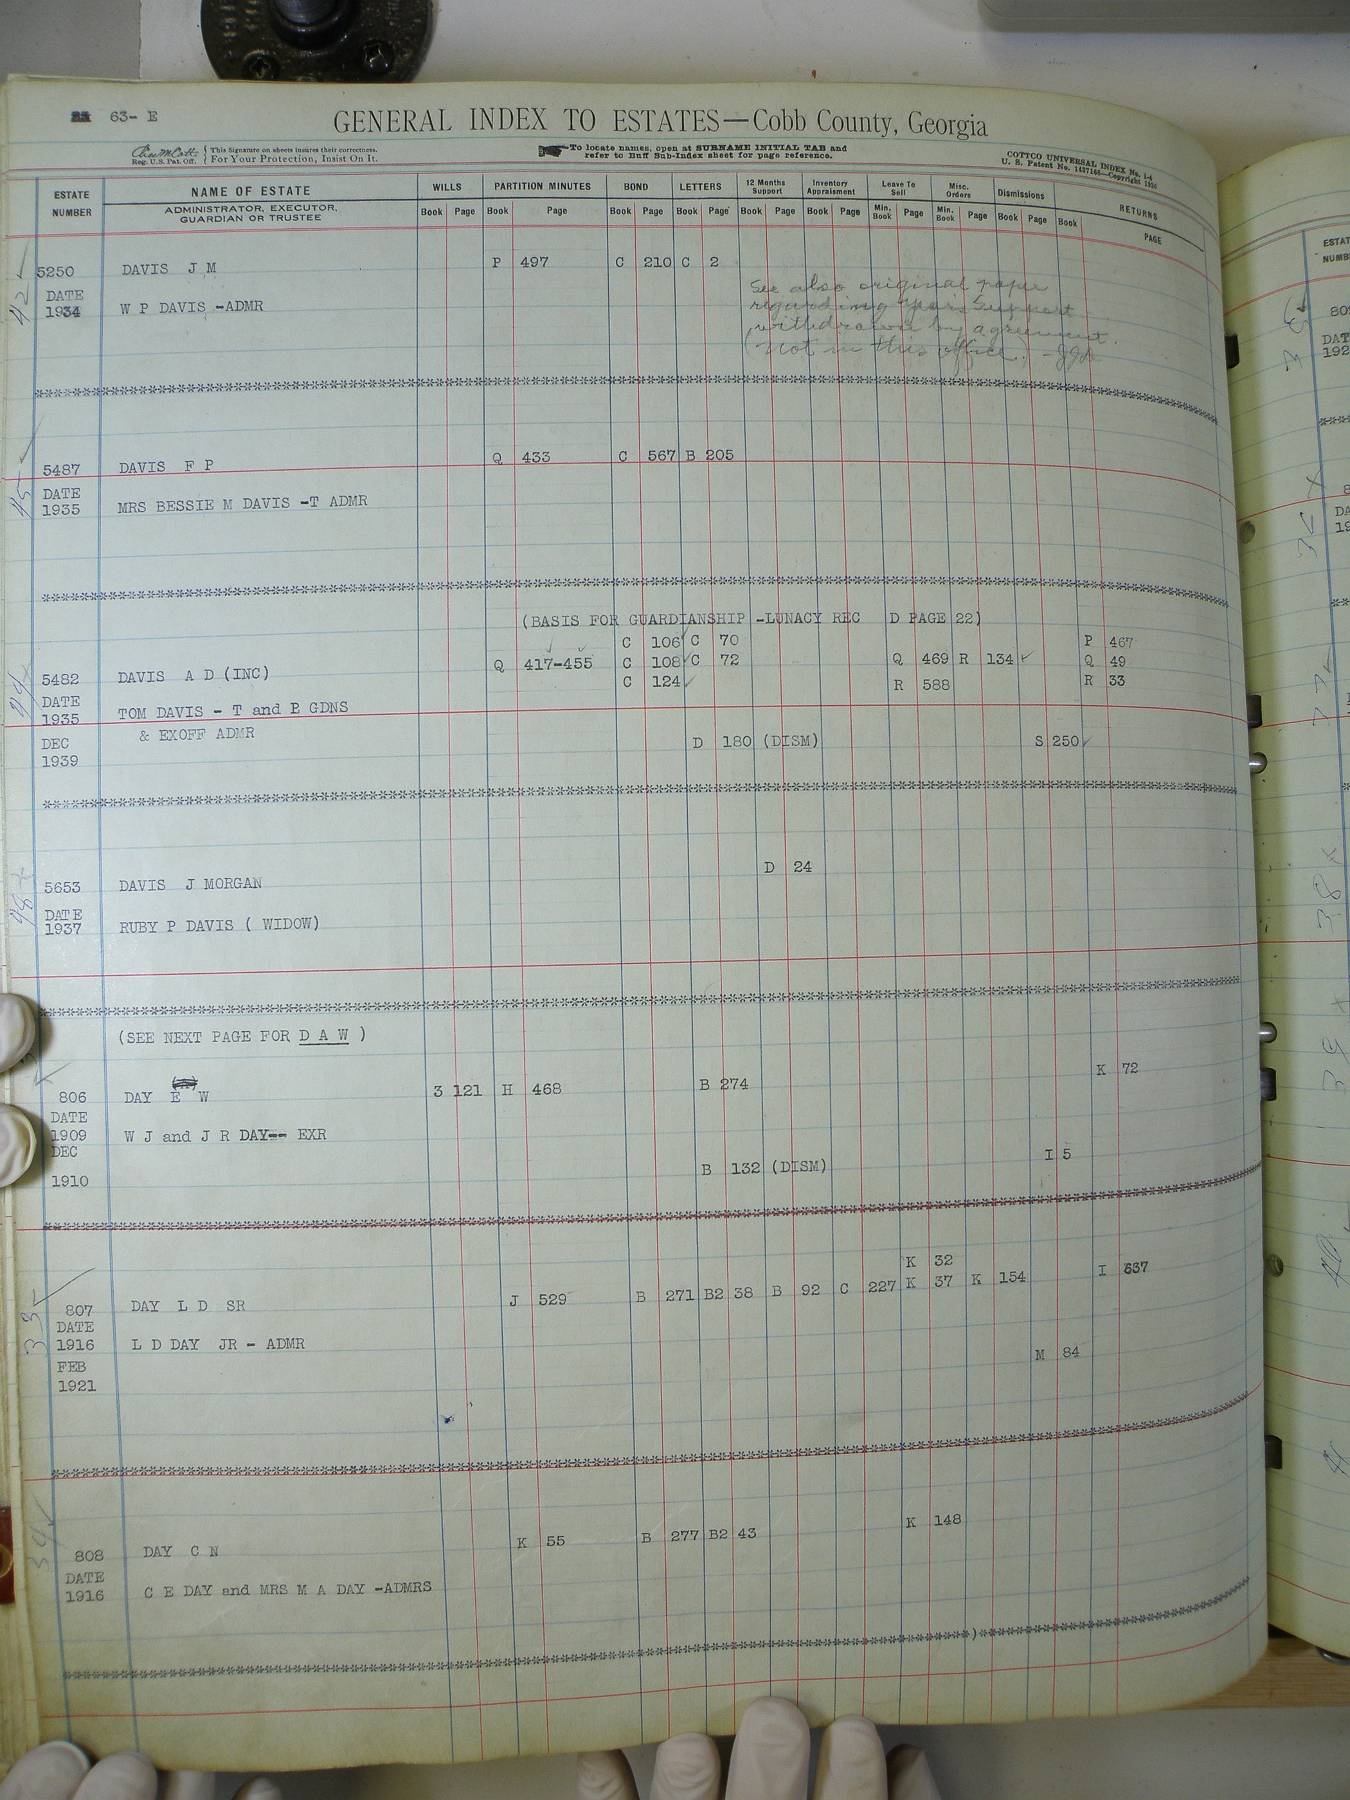 63- E
GENERAL INDEX TO ESTATES—Cobb County, Georgia
This Signature on sheets insures their correctness.
Reg. U.S. Pat. Off. For Your Protection, Insist On It.
To locate names, open at SURNAME INITIAL TAB and
refer to Buff Sub-Index sheet for page reference.
COTTCO UNIVERSAL INDEX No. 1-4
U. S. Patent No. 1437146—Copyright 1930
ESTATE NUMBER
NAME OF ESTATE
ADMINISTRATOR, EXECUTOR,
GUARDIAN OR TRUSTEE
WILLS PARTITION MINUTES BOND LETTERS 12 Months Support Inventory Appraisment Leave To Sell Misc. Orders Dismissions RETURNS
Book Page Book Page Book Page Book Page Book Page Book Page Min. Book Page Min. Book Page Book Page Book PAGE
5250 DAVIS J M P 497 C 210 C 2
DATE
1934 W P DAVIS -ADMR
See also original paper
regarding Years Support
withdrawn by agreement.
(not in this office)
42
5487 DAVIS F P Q 433 C 567 B 205
DATE
1935 MRS BESSIE M DAVIS -T ADMR
45
(BASIS FOR GUARDIANSHIP -LUNACY REC D PAGE 22)
C 106 C 70 P 467
5482 DAVIS A D (INC) Q 417-455 C 108 C 72 Q 469 R 134 Q 49
C 124 R 588 R 33
DATE
1935 TOM DAVIS - T and P GDNS
& EXOFF ADMR
DEC D 180 (DISM) S 250
1939
D 24
5653 DAVIS J MORGAN
DATE
1937 RUBY P DAVIS ( WIDOW)
48
(SEE NEXT PAGE FOR D A W )
K 72
806 DAY E W 3 121 H 468 B 274
DATE
1909 W J and J R DAY-- EXR
DEC B 132 (DISM) I 5
1910
K 32
807 DAY L D SR J 529 B 271 B2 38 B 92 C 227 K 37 K 154 I 637
DATE
1916 L D DAY JR - ADMR
FEB M 84
1921
33
K 148
808 DAY C N K 55 B 277 B2 43
DATE
1916 C E DAY and MRS M A DAY -ADMRS
34